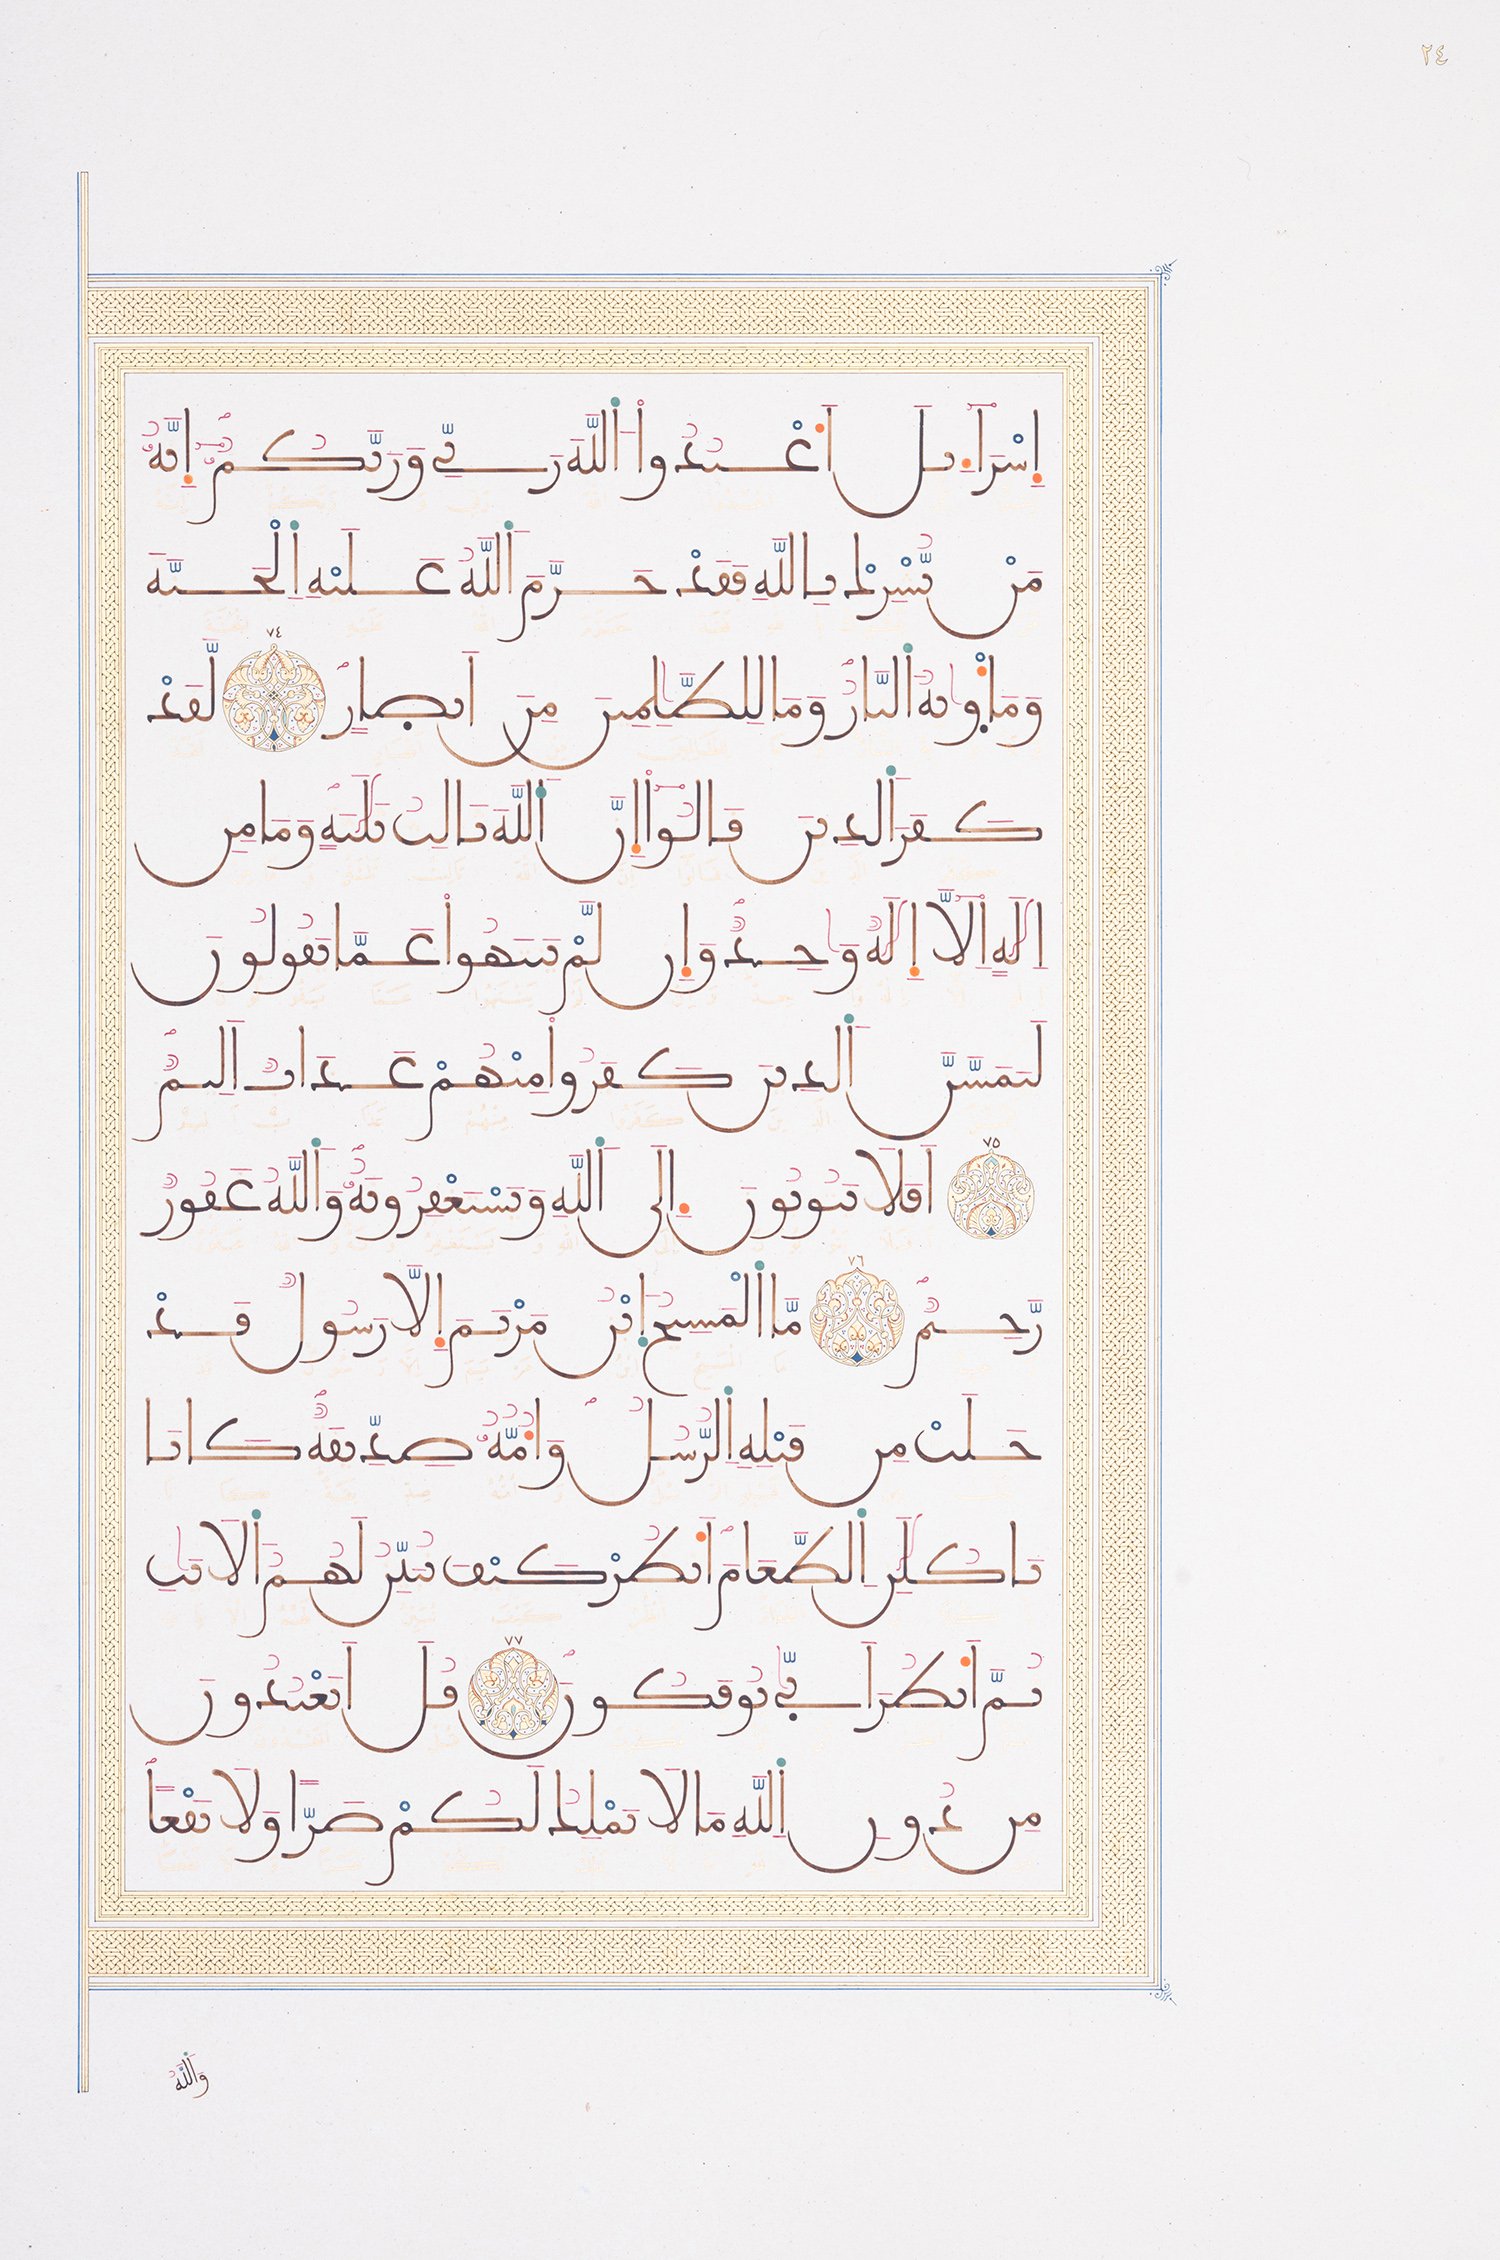 ٢٤
إِسْرَآءِيلَ أَعْبُدُوا اَللَّهَ رَبِّي وَرَبَّكُمُۥٓ إِنَّهُۥ
مَنْ يُّشْرِكْ بِاللَّهِ فَقَدْ حَرَّمَ اَللَّهُ عَلَيْهِ اِلْجَنَّةَ
وَمَأْوَيٰهُ اُلنَّارُ وَمَا لِلظَّٰلِمِينَ مِنَ اَنصَارٍ ٧٤ لَّقَدْ
كَفَرَ اَلذِينَ قَالُوٓا إِنَّ اَللَّهَ ثَالِثُ ثَلَٰثَةٍ وَمَا مِنِ
اِلَٰهٍ اِلَّآ إِلَٰهٌ وَٰحِدٌ وَإِن لَّمْ يَنتَهُوا عَمَّا يَقُولُونَ
لَيَمَسَّنَّ اَلذِينَ كَفَرُوا مِنْهُمْ عَذَابٌ اَلِيمٌ
٧٥ اَفَلَا يَتُوبُونَ إِلَى اَللَّهِ وَيَسْتَغْفِرُونَهُۥ وَاللَّهُ غَفُورٌ
رَّحِيمٌ ٧٦ مَّا اَلْمَسِيحُ اِبْنُ مَرْيَمَ إِلَّا رَسُولٌ قَدْ
خَلَتْ مِن قَبْلِهِ اِلرُّسُلُ وَأُمُّهُۥ صِدِّيقَةٌ كَانَا
يَاكُلَٰنِ اِلطَّعَامَ اَنظُرْ كَيْفَ نُبَيِّنُ لَهُمُ اُلَايَٰتِ
ثُمَّ اَنظُرَ اَنّٰي يُوفَكُونَ ٧٧ قُلَ اَتَعْبُدُونَ
مِن دُونِ اِللَّهِ مَا لَا يَمْلِكُ لَكُمْ ضَرّاً وَلَا نَفْعاً
وَاللَّهُ